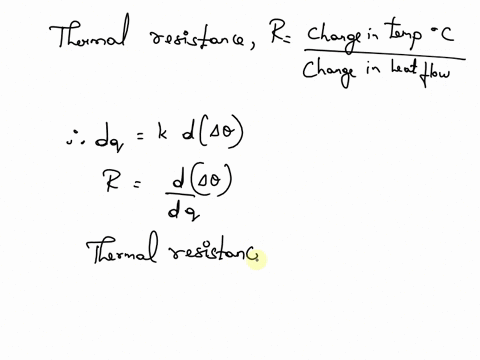 Thermal resistance, R = Change in temp °C / Change in heat flow
∴ dq = k d(Δθ)
R = d(Δθ) / dq
Thermal resistanc